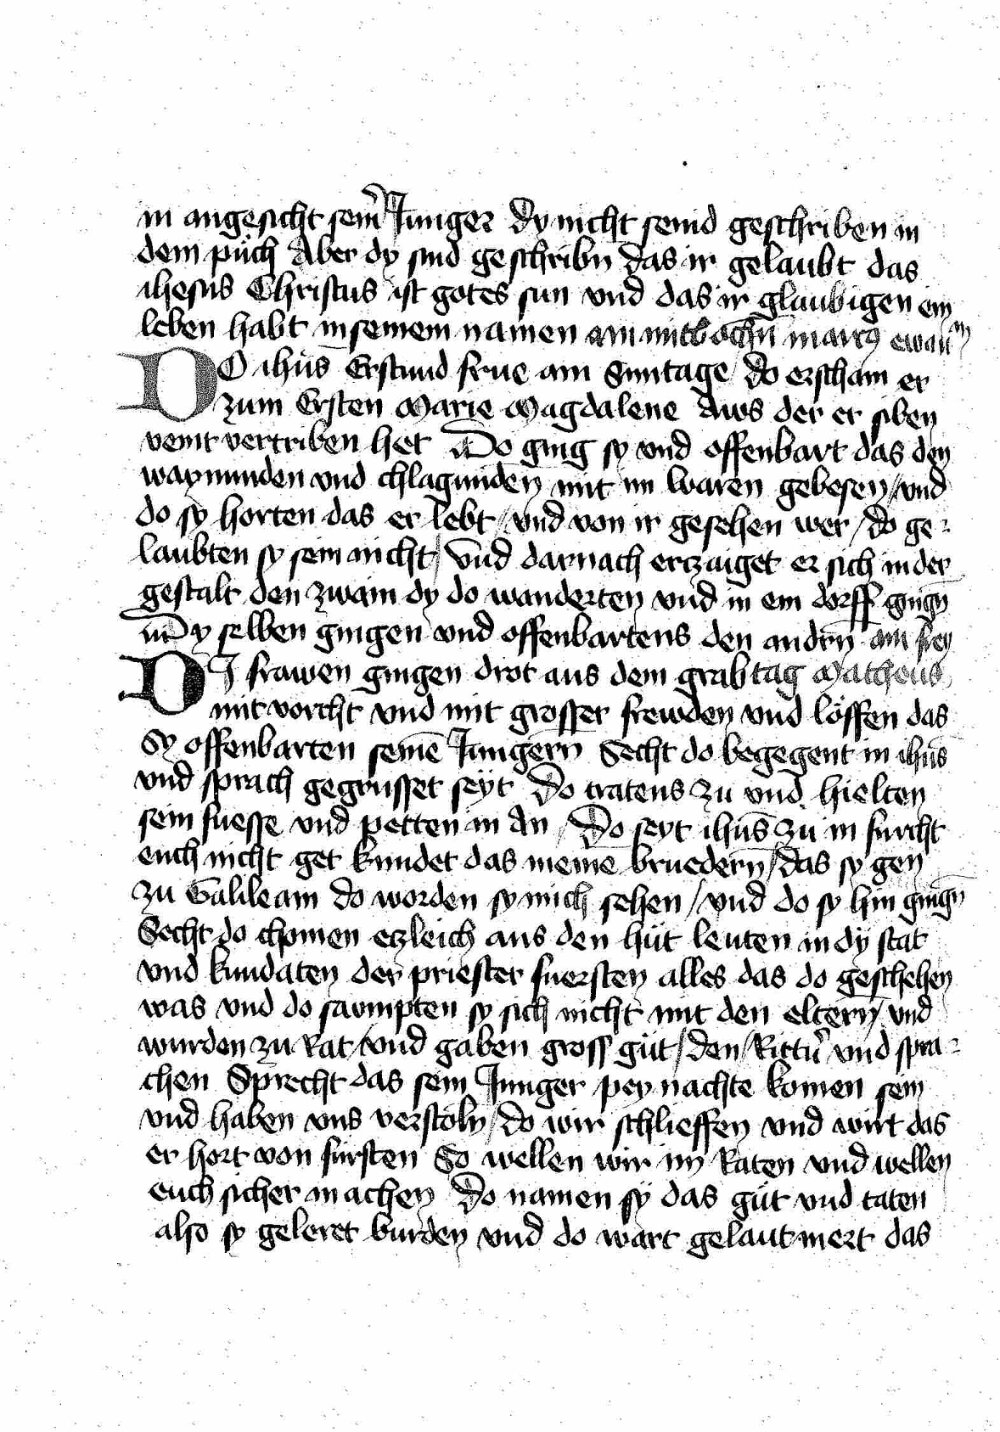 in angesicht seinͬ Junger Dy nicht seind geschriben in
dem püch Aber dy sind geschribn das ir gelaubt das
ihesus Christus ist gotes sun vnd das ir glaubigen ein
leben habt in seinem namen am mitbochn̄ marcꝯ ewanᵐ
DO ihūs Erstund frue am Sunntage / do erscham er
zum Ersten Marie Magdalene Aws der er siben
veint vertriben het Do ging sy vnd offenbart das den
waynunden vnd chlagunden mit im waren gebesen / vnd
do sy horten das er lebt / vnd von ir gesehen wer / do ge⸗
laubten sy sein nicht / vnd darnach erczaiget er sich in der
gestalt den zwain dy do wanderten vnd in ein dorff gingn̄
vn̄ Dy selben gingen vnd offenbartens den andrn̄ am frey
DJ frawen gingen drot aus dem grab tag Matheus
mit vorcht vnd mit grosser frewden vnd löffen das
Sy offenbarten seinē Jungern̄ Secht do begegent in ihūs
vnd sprach gegrusset seyt Do tratens zu vnd hielten
sein fuesse vnd petten in An / Do seyt ihūs zu in furcht
euch nicht get kundet das meinē bruedern̄ / das sy gen
zu Galileam do worden sy mich sehen / vnd do sy hin gingn̄
Secht do chomen eczleich aus den hüt leuten in dy stat
vnd kundaten der priester fuersten alles das do geschehen
was vnd do saumpten sy sich nicht mit den eltern / vnd
wurden zu Rat / vnd gaben gross güt / den Rittn̄ vnd spra⸗
chen Sprecht das sein Junger pey nachte komen sein
vnd haben vns verstoln / do wir schlieffen vnd wirt das
er hort von fursten So wellen wir im Raten vnd wellen
euch sicher machen Do namen sy das güt vnd taten
also sy geleret burden vnd do wart gelautmert das